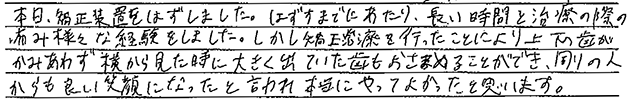 本日、矯正装置をはずしました。はずすまでにあたり、長い時間と治療の際の
痛み様々な経験をしました。しかし矯正治療を行ったことにより上下の歯が
かみあわず横から見た時に大きく出ていた歯もおさまることができ、周りの人
からも良い笑顔になったと言われ本当にやってよかったと思います。